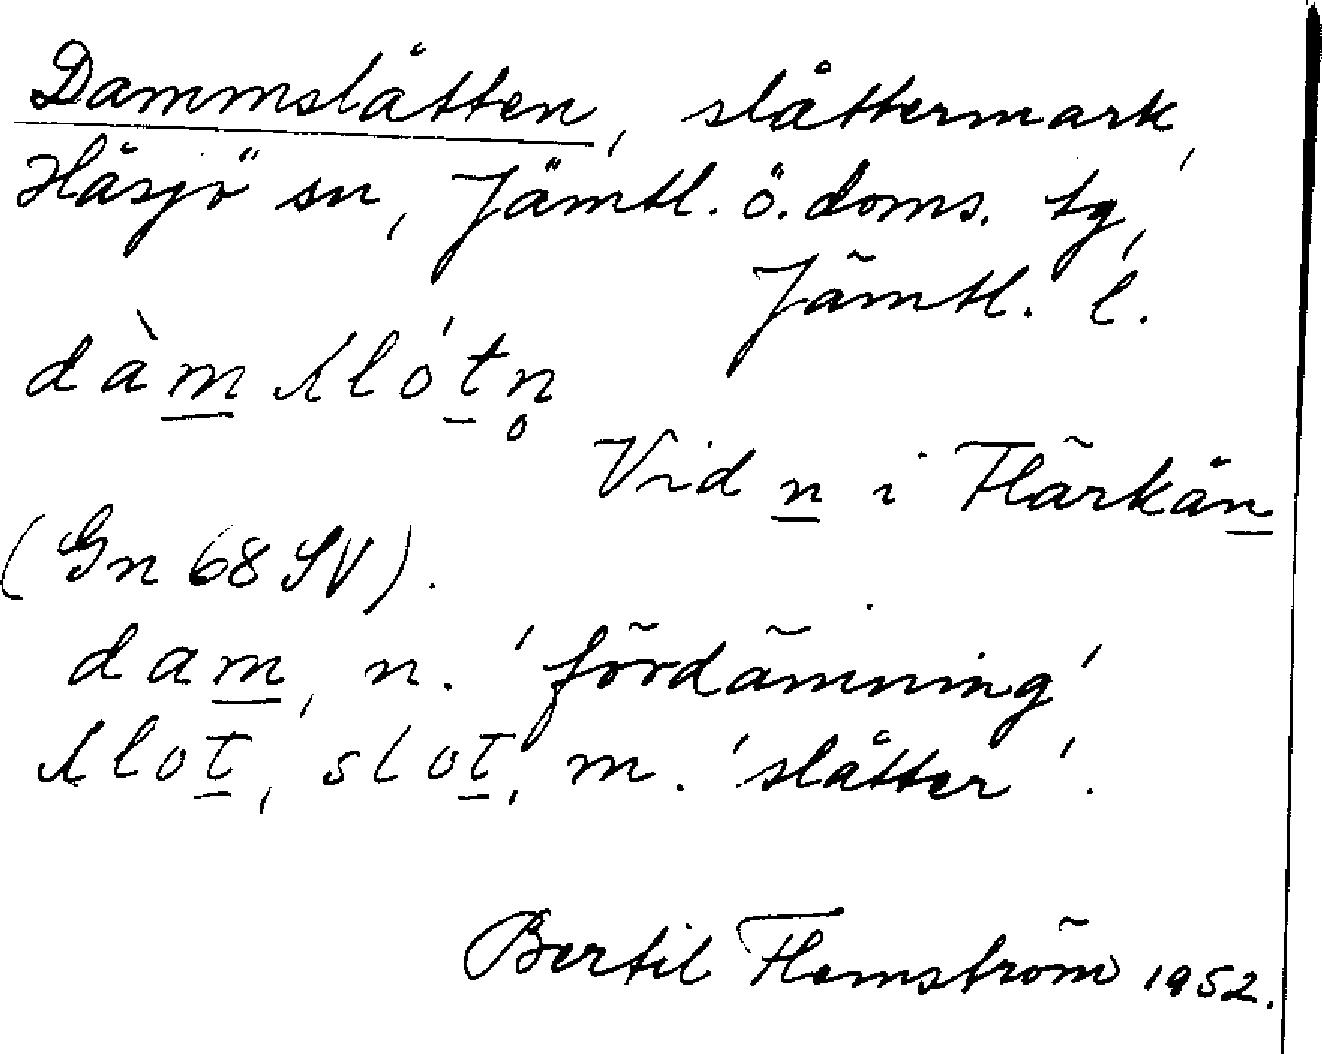 Dammslåtten, slåttermark,
Håsjö sn, Jämtl. ö. doms. tg,
Jämtl. l.
dàmslótn̥
Vid n i Flärkån
(Gn 68 SV).
dam, n. 'fördämning'
slot, slot, m. 'slåtter'.
Bertil Flemström 1952.